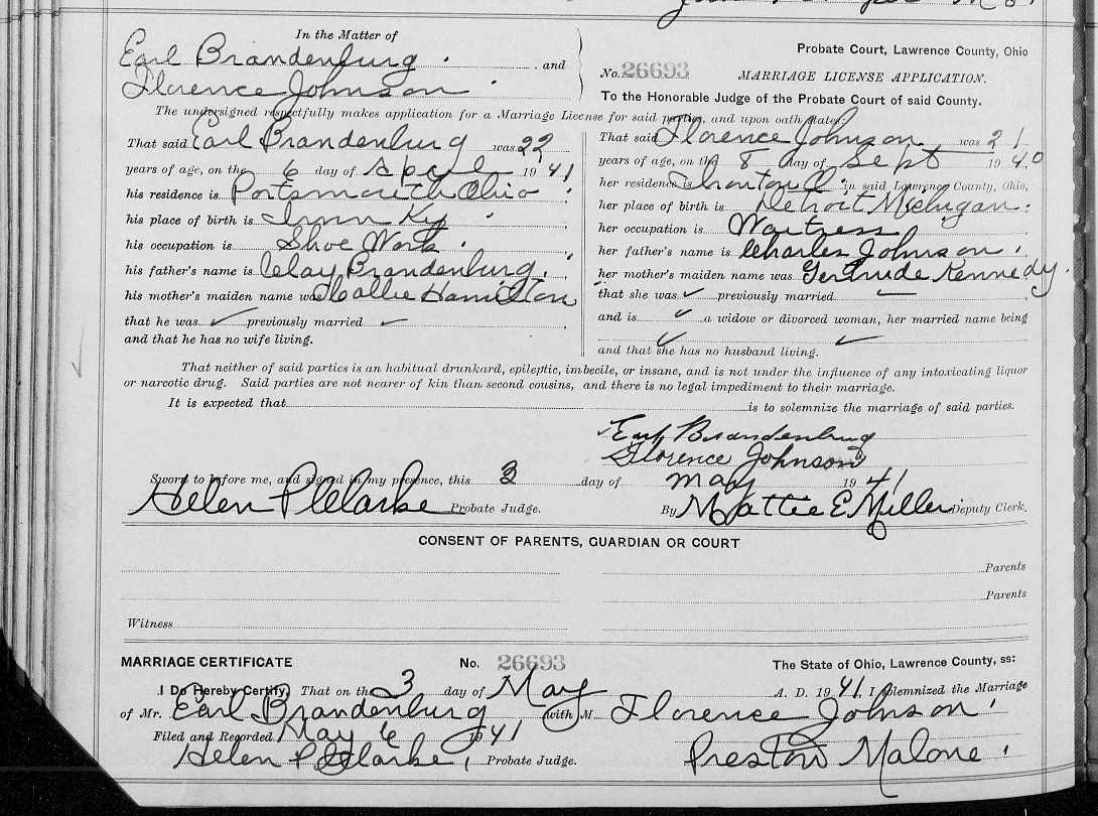 In the Matter of
Earl Brandenburg . and
Florence Johnson .
Probate Court, Lawrence County, Ohio
No. 26693 MARRIAGE LICENSE APPLICATION.
To the Honorable Judge of the Probate Court of said County.
The undersigned respectfully makes application for a Marriage License for said parties, and upon oath states:
That said Earl Brandenburg was 22
years of age, on the 6 day of April 19 41
his residence is Portsmouth Ohio .
his place of birth is Irvin Ky .
his occupation is Shoe Work .
his father's name is Clay Brandenburg .
his mother's maiden name was Hallie Hamilton
that he was ✓ previously married ✓
and that he has no wife living.
That said Florence Johnson was 21
years of age, on the 18 day of Sept 19 40
her residence is Ironton O. in said Lawrence County, Ohio,
her place of birth is Detroit Michigan .
her occupation is Waitress
her father's name is Charles Johnson .
her mother's maiden name was Gertrude Kennedy .
that she was ✓ previously married ✓
and is ✓ a widow or divorced woman, her married name being
✓ ✓
and that she has no husband living.
That neither of said parties is an habitual drunkard, epileptic, imbecile, or insane, and is not under the influence of any intoxicating liquor
or narcotic drug. Said parties are not nearer of kin than second cousins, and there is no legal impediment to their marriage.
It is expected that is to solemnize the marriage of said parties.
Earl Brandenburg
Florence Johnson
Sworn to before me, and signed in my presence, this 3 day of May 19 41
Helen P Clarke Probate Judge. By Mattie E Miller Deputy Clerk.
CONSENT OF PARENTS, GUARDIAN OR COURT
Parents
Parents
Witness
MARRIAGE CERTIFICATE No. 26693 The State of Ohio, Lawrence County, ss:
I Do Hereby Certify, That on the 3 day of May A. D. 19 41. I solemnized the Marriage
of Mr. Earl Brandenburg with M Florence Johnson .
Filed and Recorded May 6 1941
Helen P Clarke, Probate Judge. Preston Malone .